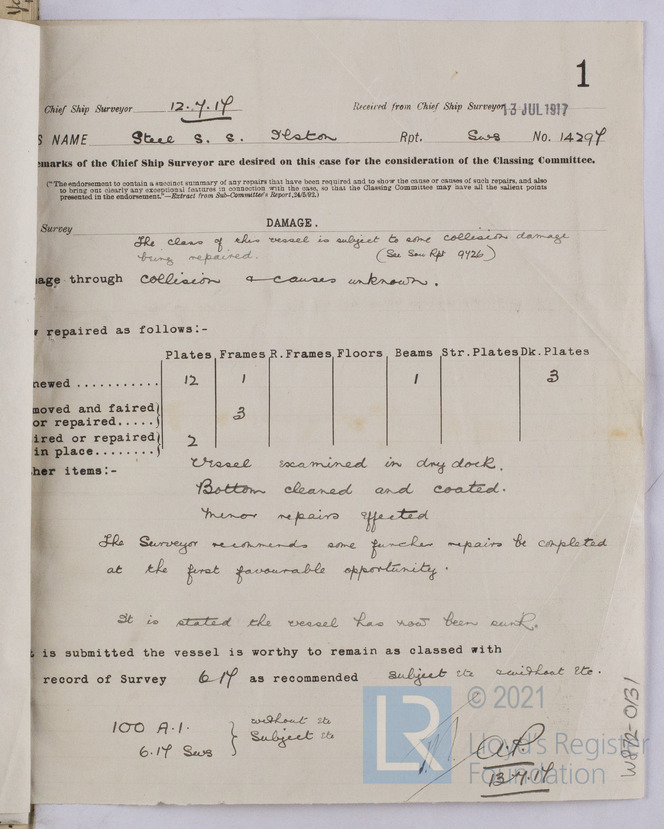 1
Chief Ship Surveyor 12.7.17 Received from Chief Ship Surveyor 13 JUL 1917
S NAME Steel S. S. Ilston Rpt. Sws No. 14297
emarks of the Chief Ship Surveyor are desired on this case for the consideration of the Classing Committee.
("The endorsement to contain a succinct summary of any repairs that have been required and to show the cause or causes of such repairs, and also
to bring out clearly any exceptional features in connection with the case, so that the Classing Committee may have all the salient points
presented in the endorsement."—Extract from Sub-Committee's Report, 24/5/92.)
Survey DAMAGE.
The class of this vessel is subject to some collision damage
being repaired. (See Sou Rpt 9426)
age through collision & causes unknown.
w repaired as follows:-
Plates Frames R.Frames Floors Beams Str.Plates Dk.Plates
newed ........... 12 1 1 3
moved and faired)
or repaired.....) 3
ired or repaired)
in place........) 2
her items:- Vessel examined in dry dock.
Bottom cleaned and coated.
Minor repairs effected
The Surveyor recommends some further repairs be completed
at the first favourable opportunity.
It is stated the vessel has now been sunk.
t is submitted the vessel is worthy to remain as classed with
record of Survey 6.17 as recommended subject etc without etc.
100 A.1. } without etc
6.17 Sws } Subject etc
AR
13.7.17
LR
© 2021
Lloyd's Register
Foundation
W872-0131